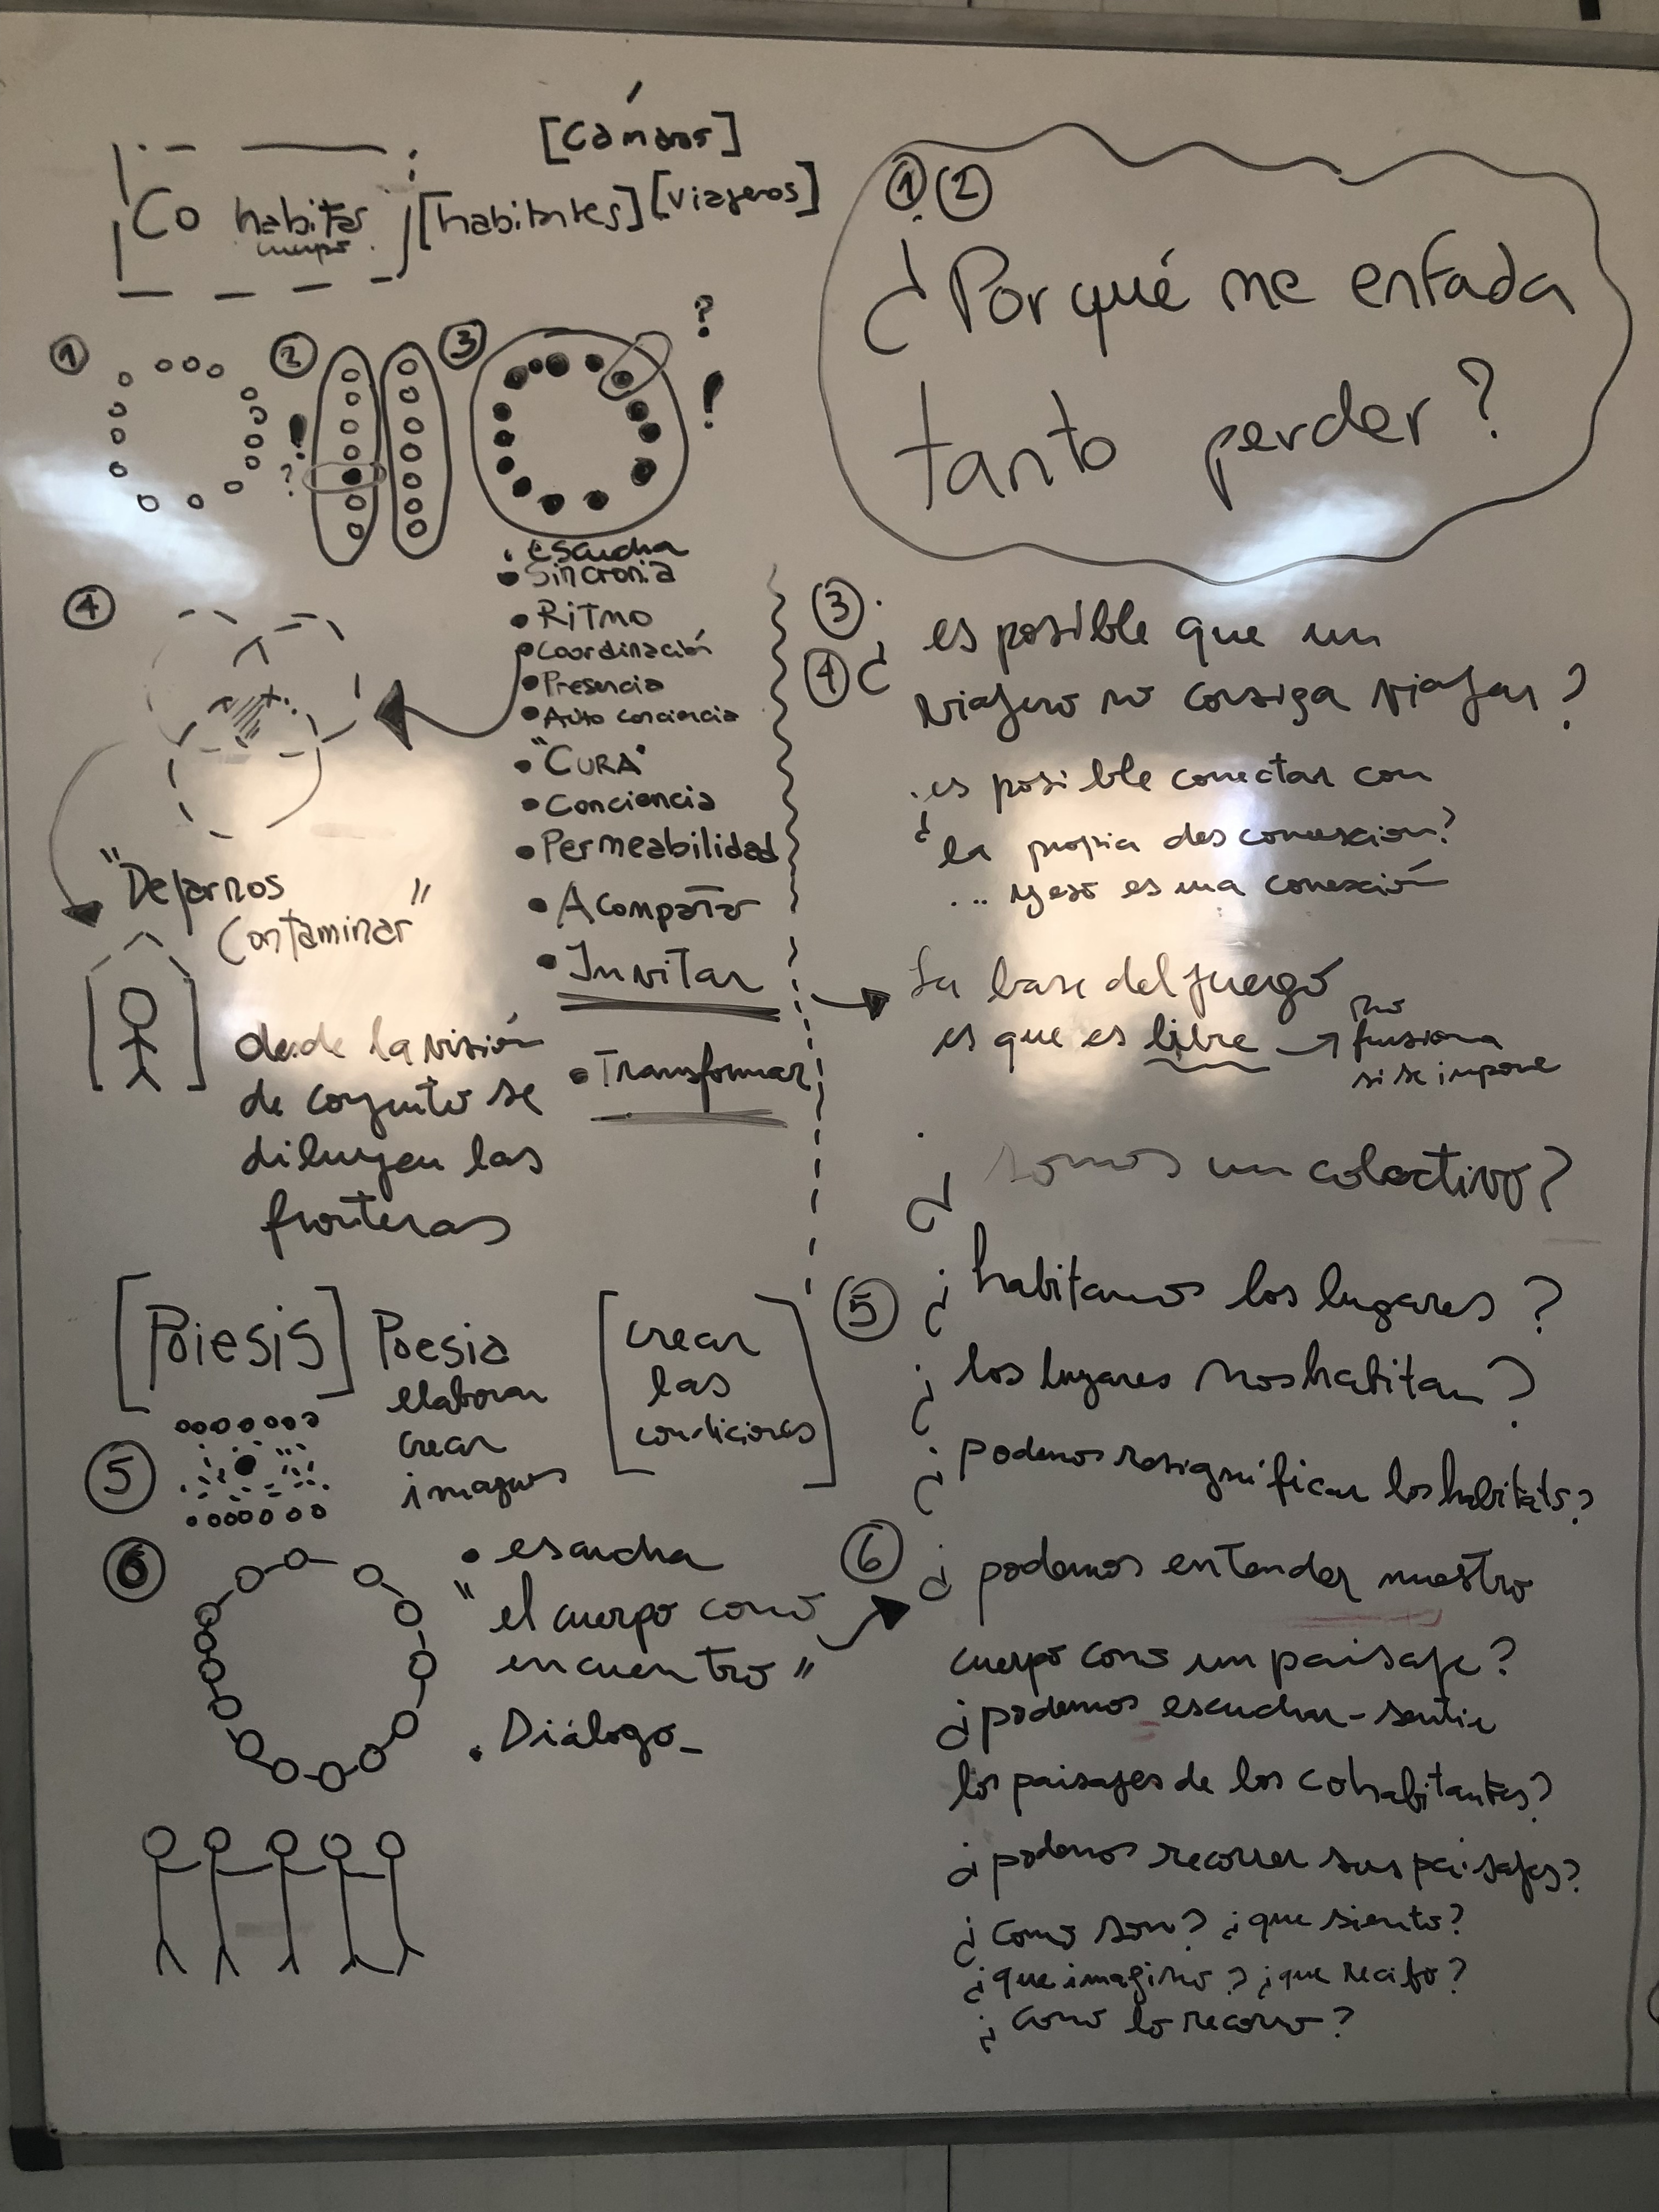 Co habitar
cuerpo
[habitantes]
[viajeros]
① ②
¿Porqué me enfada
tanto perder?
① ② ③
?
!
!
?
• escucha
• Sincronia
• Ritmo
• Coordinación
• Presencia
• Auto conciencia
• "CURA"
• Conciencia
• Permeabilidad
• Acompañar
• Invitar
• Transformar
④
"Dejarnos
Contaminar"
desde la visión
de conjunto se
diluyen las
fronteras
③
④ ¿es posible que un
viajero no consiga viajar?
¿es posible conectar con
la propia desconexion?
... y eso es una conexión
La base del juego
es que es libre → no
funciona
si se impone
¿somos un colectivo?
[Poiesis] Poesia
elaborar
crear
imagenes
[crear
las
condiciones]
⑤
⑤ ¿habitamos los lugares?
¿los lugares nos habitan?
¿podemos resignificar los habitats?
⑥
• escucha
"el cuerpo como
encuentro"
• Diálogo
⑥ ¿podemos entender nuestro
cuerpo como un paisaje?
¿podemos escuchar-sentir
los paisajes de los cohabitantes?
¿podemos recorrer sus paisajes?
¿como son? ¿que siento?
¿que imagino? ¿que recibo?
¿como lo recorro?